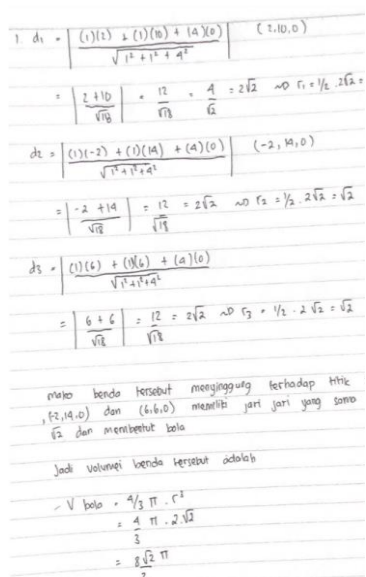 1. d₁ = | (1)(2) + (1)(10) + (4)(0) / √1² + 1² + 4² | (2,10,0)
= | 2+10 / √18 | = 12 / √18 = 4 / √2 = 2√2 ~> r₁ = 1/2 . 2√2 =
d₂ = | (1)(-2) + (1)(14) + (4)(0) / √1²+1²+4² | (-2, 14, 0)
= | -2 + 14 / √18 | = 12 / √18 = 2√2 ~> r₂ = 1/2 . 2√2 = √2
d₃ = | (1)(6) + (1)(6) + (4)(0) / √1²+1²+4²
= | 6 + 6 / √18 | = 12 / √18 = 2√2 ~> r₃ = 1/2 . 2√2 = √2
maka benda tersebut menyinggung terhadap titik
, (-2,14,0) dan (6,6,0) memiliki jari jari yang sama
√2 dan membentuk bola
Jadi volumei benda tersebut adalah
- V bola = 4/3 π . r³
= 4/3 π . 2.√2
= 8√2 π / 3